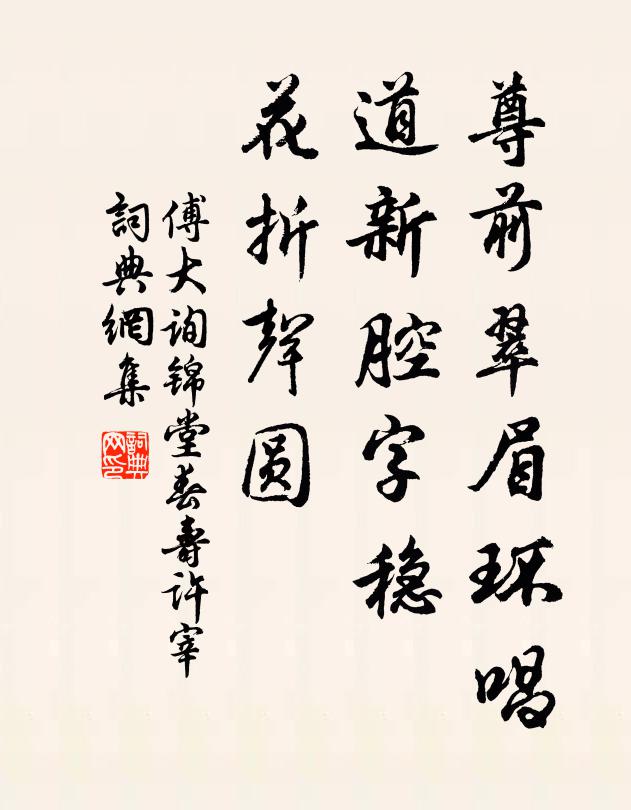 尊前翠眉环唱
道新腔字稳
花折声圆
傅大询锦堂春寿许宰
詞典網集
詞典网印